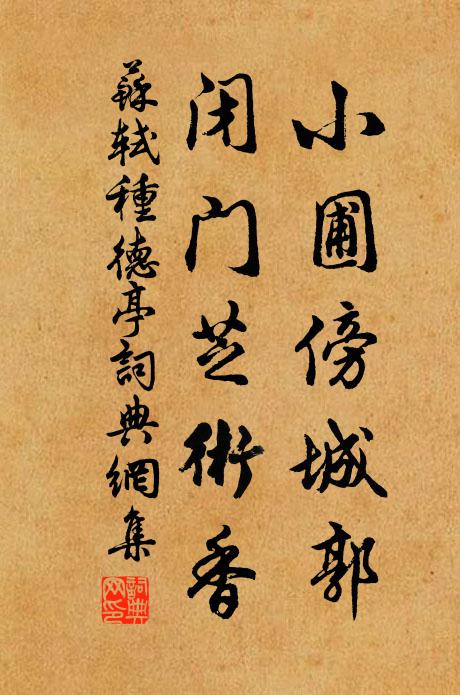 小圃傍城郭
闭门芝術香
蘇軾種德亭詞典網集
詞典网印